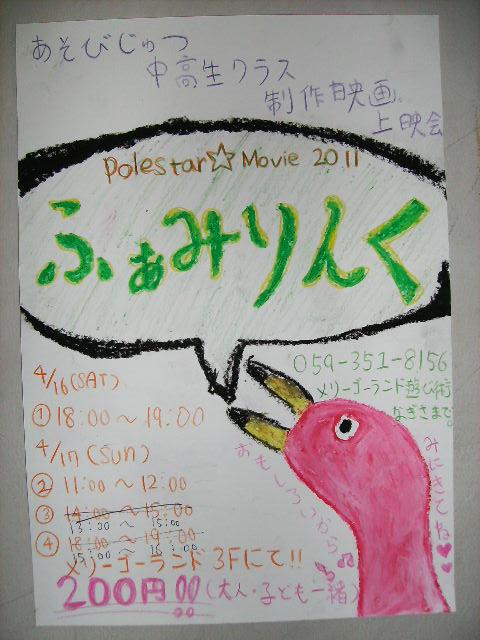 あそびじゅつ
中高生クラス
制作映画
上映会
Polestar☆Movie 2011
ふぁみりんく
059-351-8156
メリーゴーランド遊び術
なぎさまで。
4/16(SAT)
①18:00〜19:00
4/17(SUN)
②11:00〜12:00
③14:00〜15:00
13:00〜15:00
④18:00〜19:00
15:00〜16:00
メリーゴーランド 3Fにて!!
200円!!(大人・子ども一緒)
おもしろいから♫♪
みにきてね♥♥